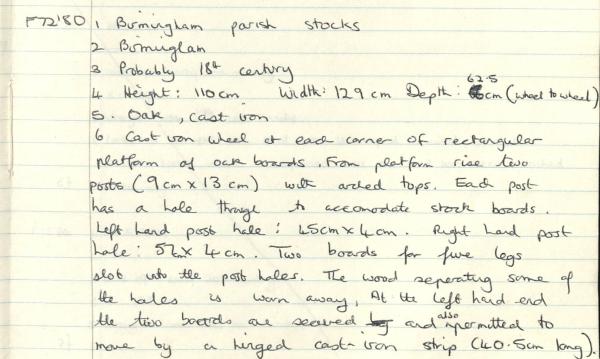 F72'80 1 Birmingham parish stocks
2 Birmingham
3 Probably 18th century
4 Height: 110cm Width: 129 cm Depth: 62.5 cm (wheel to wheel)
5. Oak, cast iron
6 Cast iron wheel at each corner of rectangular
platform of oak boards. From platform rise two
posts (9cm x 13 cm) with arched tops. Each post
has a hole through to accomodate stock boards.
Left hand post hole: 45cm x 4cm. Right hand post
hole: 52cm x 4cm. Two boards for five legs
slot into the post holes. The wood seperating some of
the holes is worn away. At the left hand end
the two boards are secured and also permitted to
move by a hinged cast-iron strip (40.5cm long).